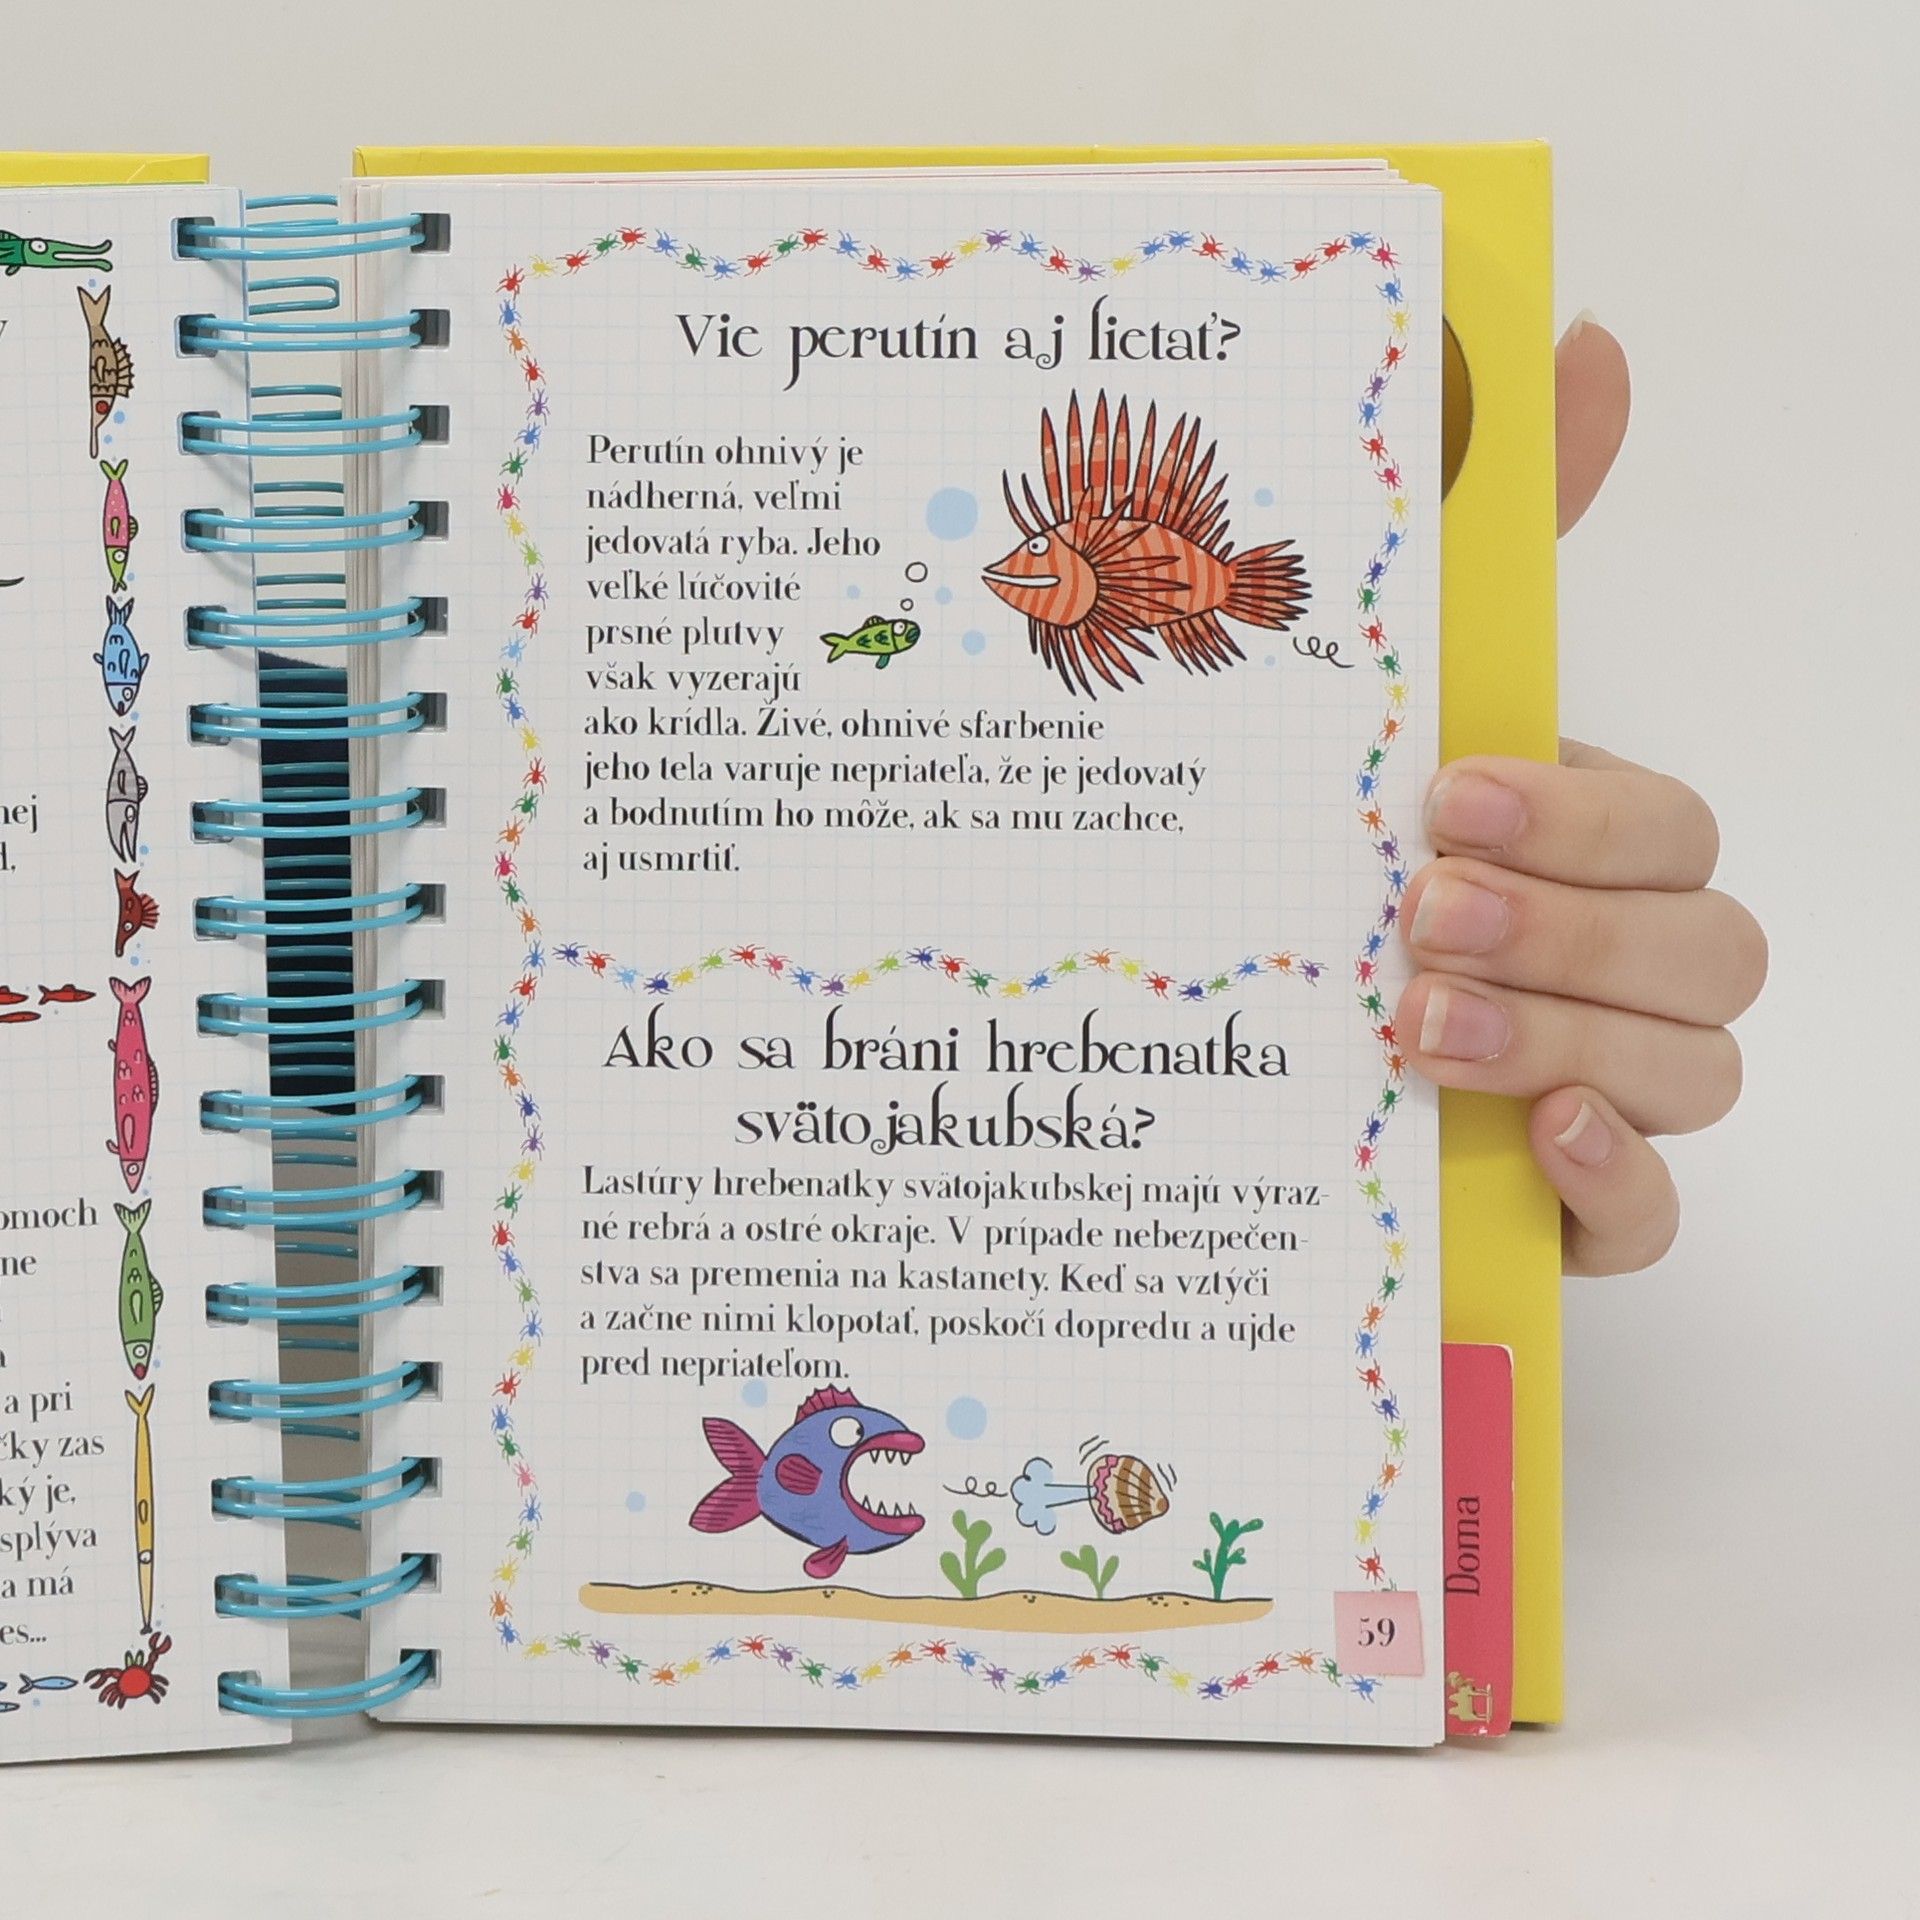 nej
omoch
ne
a pri
čky zas
ký je,
splýva
a má
es...
Vie perutín aj lietať?
Perutín ohnivý je
nádherná, veľmi
jedovatá ryba. Jeho
veľké lúčovité
prsné plutvy
však vyzerajú
ako krídla. Živé, ohnivé sfarbenie
jeho tela varuje nepriateľa, že je jedovatý
a bodnutím ho môže, ak sa mu zachce,
aj usmrtiť.
Ako sa bráni hrebenatka
svätojakubská?
Lastúry hrebenatky svätojakubskej majú výraz-
né rebrá a ostré okraje. V prípade nebezpečen-
stva sa premenia na kastanety. Keď sa vztýči
a začne nimi klopotať, poskočí dopredu a ujde
pred nepriateľom.
59
Doma